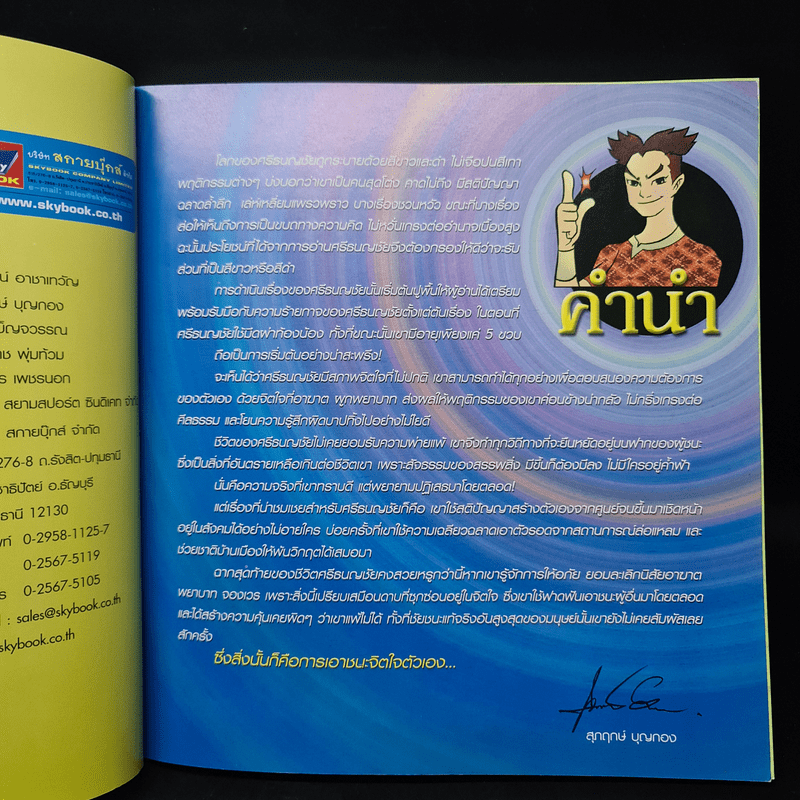 บริษัท สกายบุ๊กส์ จำกัด
SKYBOOK COMPANY LIMITED
e-mail: sales@skybook
www.skybook.co.th
น์ อาชาเทวัญ
ษ์ บุญกอง
บ็ญจวรรณ
าช พุ่มท้วม
ร เพชรนอก
สยามสปอร์ต ซินดิเคท จำกั
สกายบุ๊กส์ จำกัด
276-8 ถ.รังสิต-ปทุมธานี
าธิปัตย์ อ.ธัญบุรี
ธานี 12130
พท์ 0-2958-1125-7
0-2567-5119
ร 0-2567-5105
l : sales@skybook.co.th
skybook.co.th
คำนำ
โลกของศรีธนญชัยถูกระบายด้วยสีขาวและดำ ไม่เจือปนสีเทา
พฤติกรรมต่างๆ บ่งบอกว่าเขาเป็นคนสุดโต่ง คาดไม่ถึง มีสติปัญญา
ฉลาดล้ำลึก เล่ห์เหลี่ยมแพรวพราว บางเรื่องชวนหัว ขณะที่บางเรื่อง
ส่อให้เห็นถึงการเป็นขบถทางความคิด ไม่หวั่นเกรงต่ออำนาจเบื้องสูง
ฉะนั้นประโยชน์ที่ได้จากการอ่านศรีธนญชัยจึงต้องกรองให้ดีว่าจะรับ
ส่วนที่เป็นสีขาวหรือสีดำ
การดำเนินเรื่องของศรีธนญชัยนั้นเริ่มต้นปูพื้นให้ผู้อ่านได้เตรียม
พร้อมรับมือกับความร้ายกาจของศรีธนญชัยตั้งแต่ต้นเรื่อง ในตอนที่
ศรีธนญชัยใช้มีดผ่าท้องน้อง ทั้งที่ขณะนั้นเขามีอายุเพียงแค่ 5 ขวบ
ถือเป็นการเริ่มต้นอย่างน่าสะพรึง!
จะเห็นได้ว่าศรีธนญชัยมีสภาพจิตใจที่ไม่ปกติ เขาสามารถทำได้ทุกอย่างเพื่อตอบสนองความต้องการ
ของตัวเอง ด้วยจิตใจที่อาฆาต ผูกพยาบาท ส่งผลให้พฤติกรรมของเขาค่อนข้างน่ากลัว ไม่กริ่งเกรงต่อ
ศีลธรรม และโยนความรู้สึกผิดบาปทิ้งไปอย่างไม่ไยดี
ชีวิตของศรีธนญชัยไม่เคยยอมรับความพ่ายแพ้ เขาจึงทำทุกวิถีทางที่จะยืนหยัดอยู่บนฟากของผู้ชนะ
ซึ่งเป็นสิ่งที่อันตรายเหลือเกินต่อชีวิตเขา เพราะสัจธรรมของสรรพสิ่ง มีขึ้นก็ต้องมีลง ไม่มีใครอยู่ค้ำฟ้า
นั่นคือความจริงที่เขาทราบดี แต่พยายามปฏิเสธมาโดยตลอด!
แต่เรื่องที่น่าชมเชยสำหรับศรีธนญชัยก็คือ เขาใช้สติปัญญาสร้างตัวเองจากศูนย์จนขึ้นมาเชิดหน้า
อยู่ในสังคมได้อย่างไม่อายใคร บ่อยครั้งที่เขาใช้ความเฉลียวฉลาดเอาตัวรอดจากสถานการณ์ล่อแหลม และ
ช่วยชาติบ้านเมืองให้พ้นวิกฤตได้เสมอมา
ฉากสุดท้ายของชีวิตศรีธนญชัยคงสวยหรูกว่านี้หากเขารู้จักการให้อภัย ยอมละเลิกนิสัยอาฆาต
พยาบาท จองเวร เพราะสิ่งนี้เปรียบเสมือนดาบที่ซุกซ่อนอยู่ในจิตใจ ซึ่งเขาใช้ฟาดฟันเอาชนะผู้อื่นมาโดยตลอด
และได้สร้างความคุ้นเคยผิดๆ ว่าเขาแพ้ไม่ได้ ทั้งที่ชัยชนะแท้จริงอันสูงสุดของมนุษย์นั้นเขายังไม่เคยสัมผัสเลย
สักครั้ง
ซึ่งสิ่งนั้นก็คือการเอาชนะจิตใจตัวเอง...
สุภฤกษ์ บุญกอง